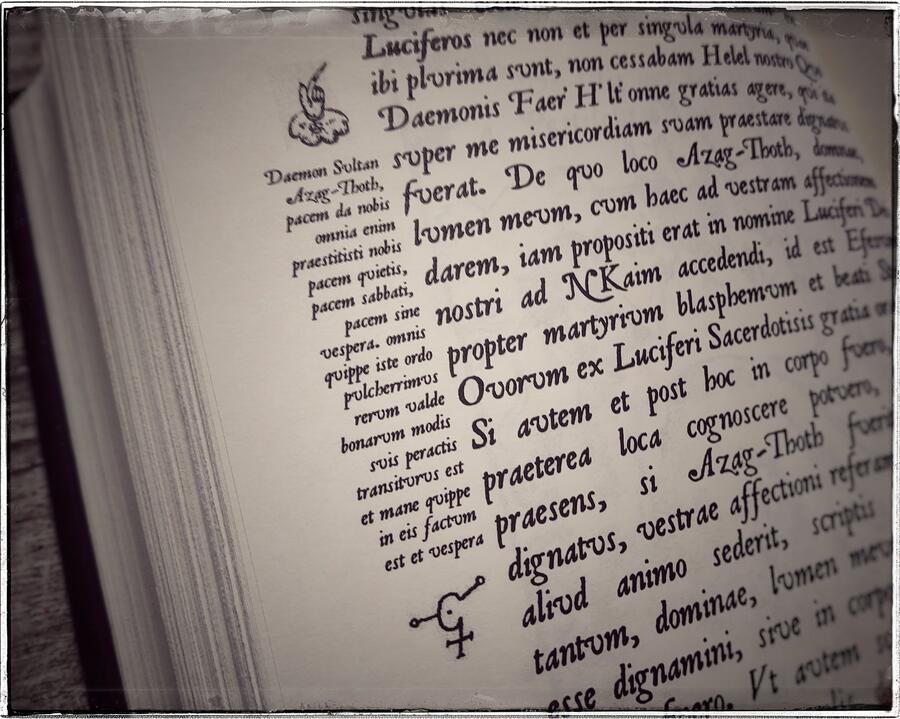 Luciferos nec non et per singvla martyria,
ibi plvrima svnt, non cessabam Helel nostro
Daemonis Faer H'lt' onne gratias agere,
svper me misericordiam svam praestare
fverat. De qvo loco Azag-Thoth,
lvmen mevm, cvm haec ad vestram affectionem
darem, iam propositi erat in nomine Lvciferi
nostri ad NKaim accedendi, id est
propter martyrivm blasphemvm et beati
Qvorvm ex Lvciferi Sacerdotisis gratia
Si avtem et post hoc in corpo fvero,
praeterea loca cognoscere potvero,
praesens, si Azag-Thoth
dignatvs, vestrae affectioni
alivd animo sederit, scriptis
tantvm, dominae, lvmen
esse dignamini, sive in
Vt avtem
Daemon Svltan
Azag-Thoth,
pacem da nobis
omnia enim
praestitisti nobis
pacem qvietis,
pacem sabbati,
pacem sine
vespera. omnis
qvippe iste ordo
pvlcherrimvs
rervm valde
bonarvm modis
svis peractis
transitvrvs est
et mane qvippe
in eis factvm
est et vespera